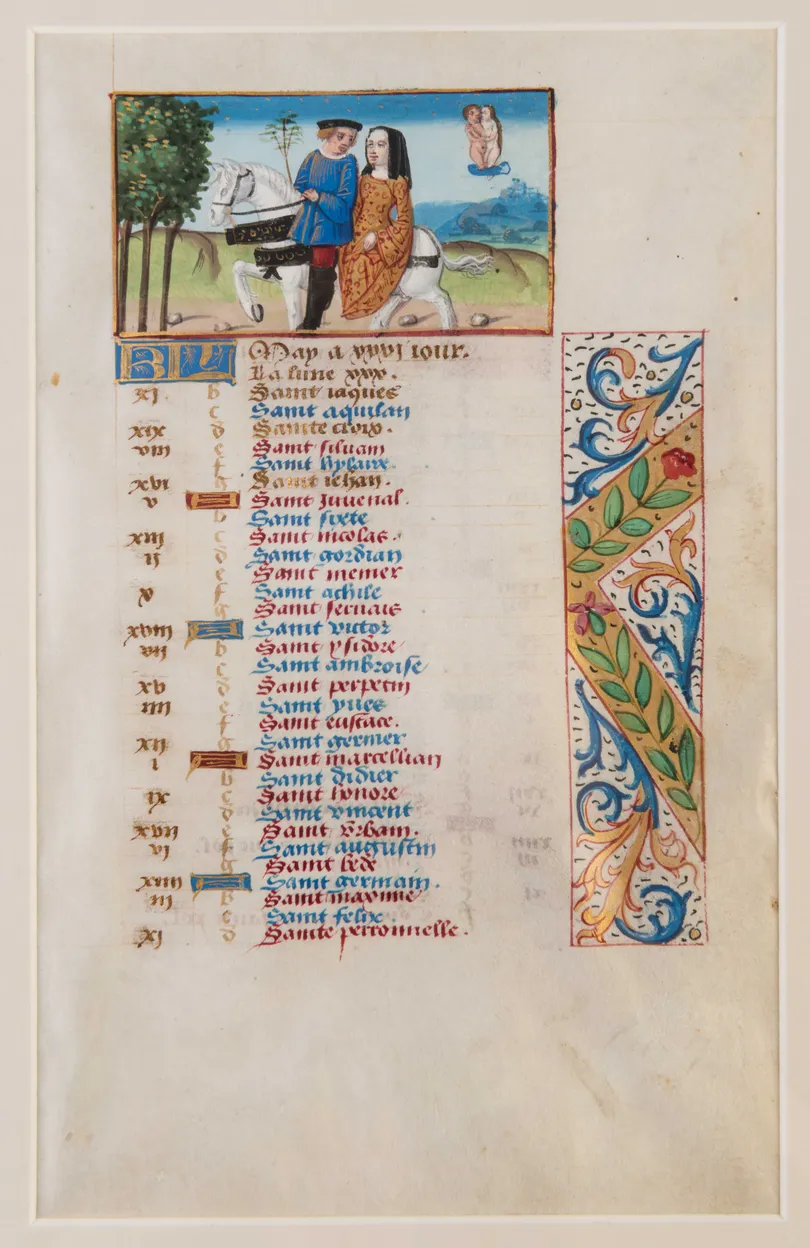 KL May a xxxj iour.
La lune xxx.
xj. b Saint iaques
c Saint aquilan
xix d Sainte croix.
viij e Saint siluain
f Saint hylaire
xvj g Saint iehan.
v Saint Juuenal.
b Saint sixte
xiij c Saint nicolas.
ij d Saint gordian
e Saint memer
x f Saint achile
g Saint seruais
xviij Saint victor
vij b Saint ysidore
c Saint ambroise
xv d Saint perpetin
iiij e Saint yues
f Saint eustace.
xij g Saint germer
i Saint marcellian
b Saint didier
ix c Saint honore
d Saint vincent
xvij e Saint vrbain.
vj f Saint augustin
g Saint bede
xiiij Saint germain.
iij b Saint maxime
c Saint felix
xj d Sainte perronnelle.